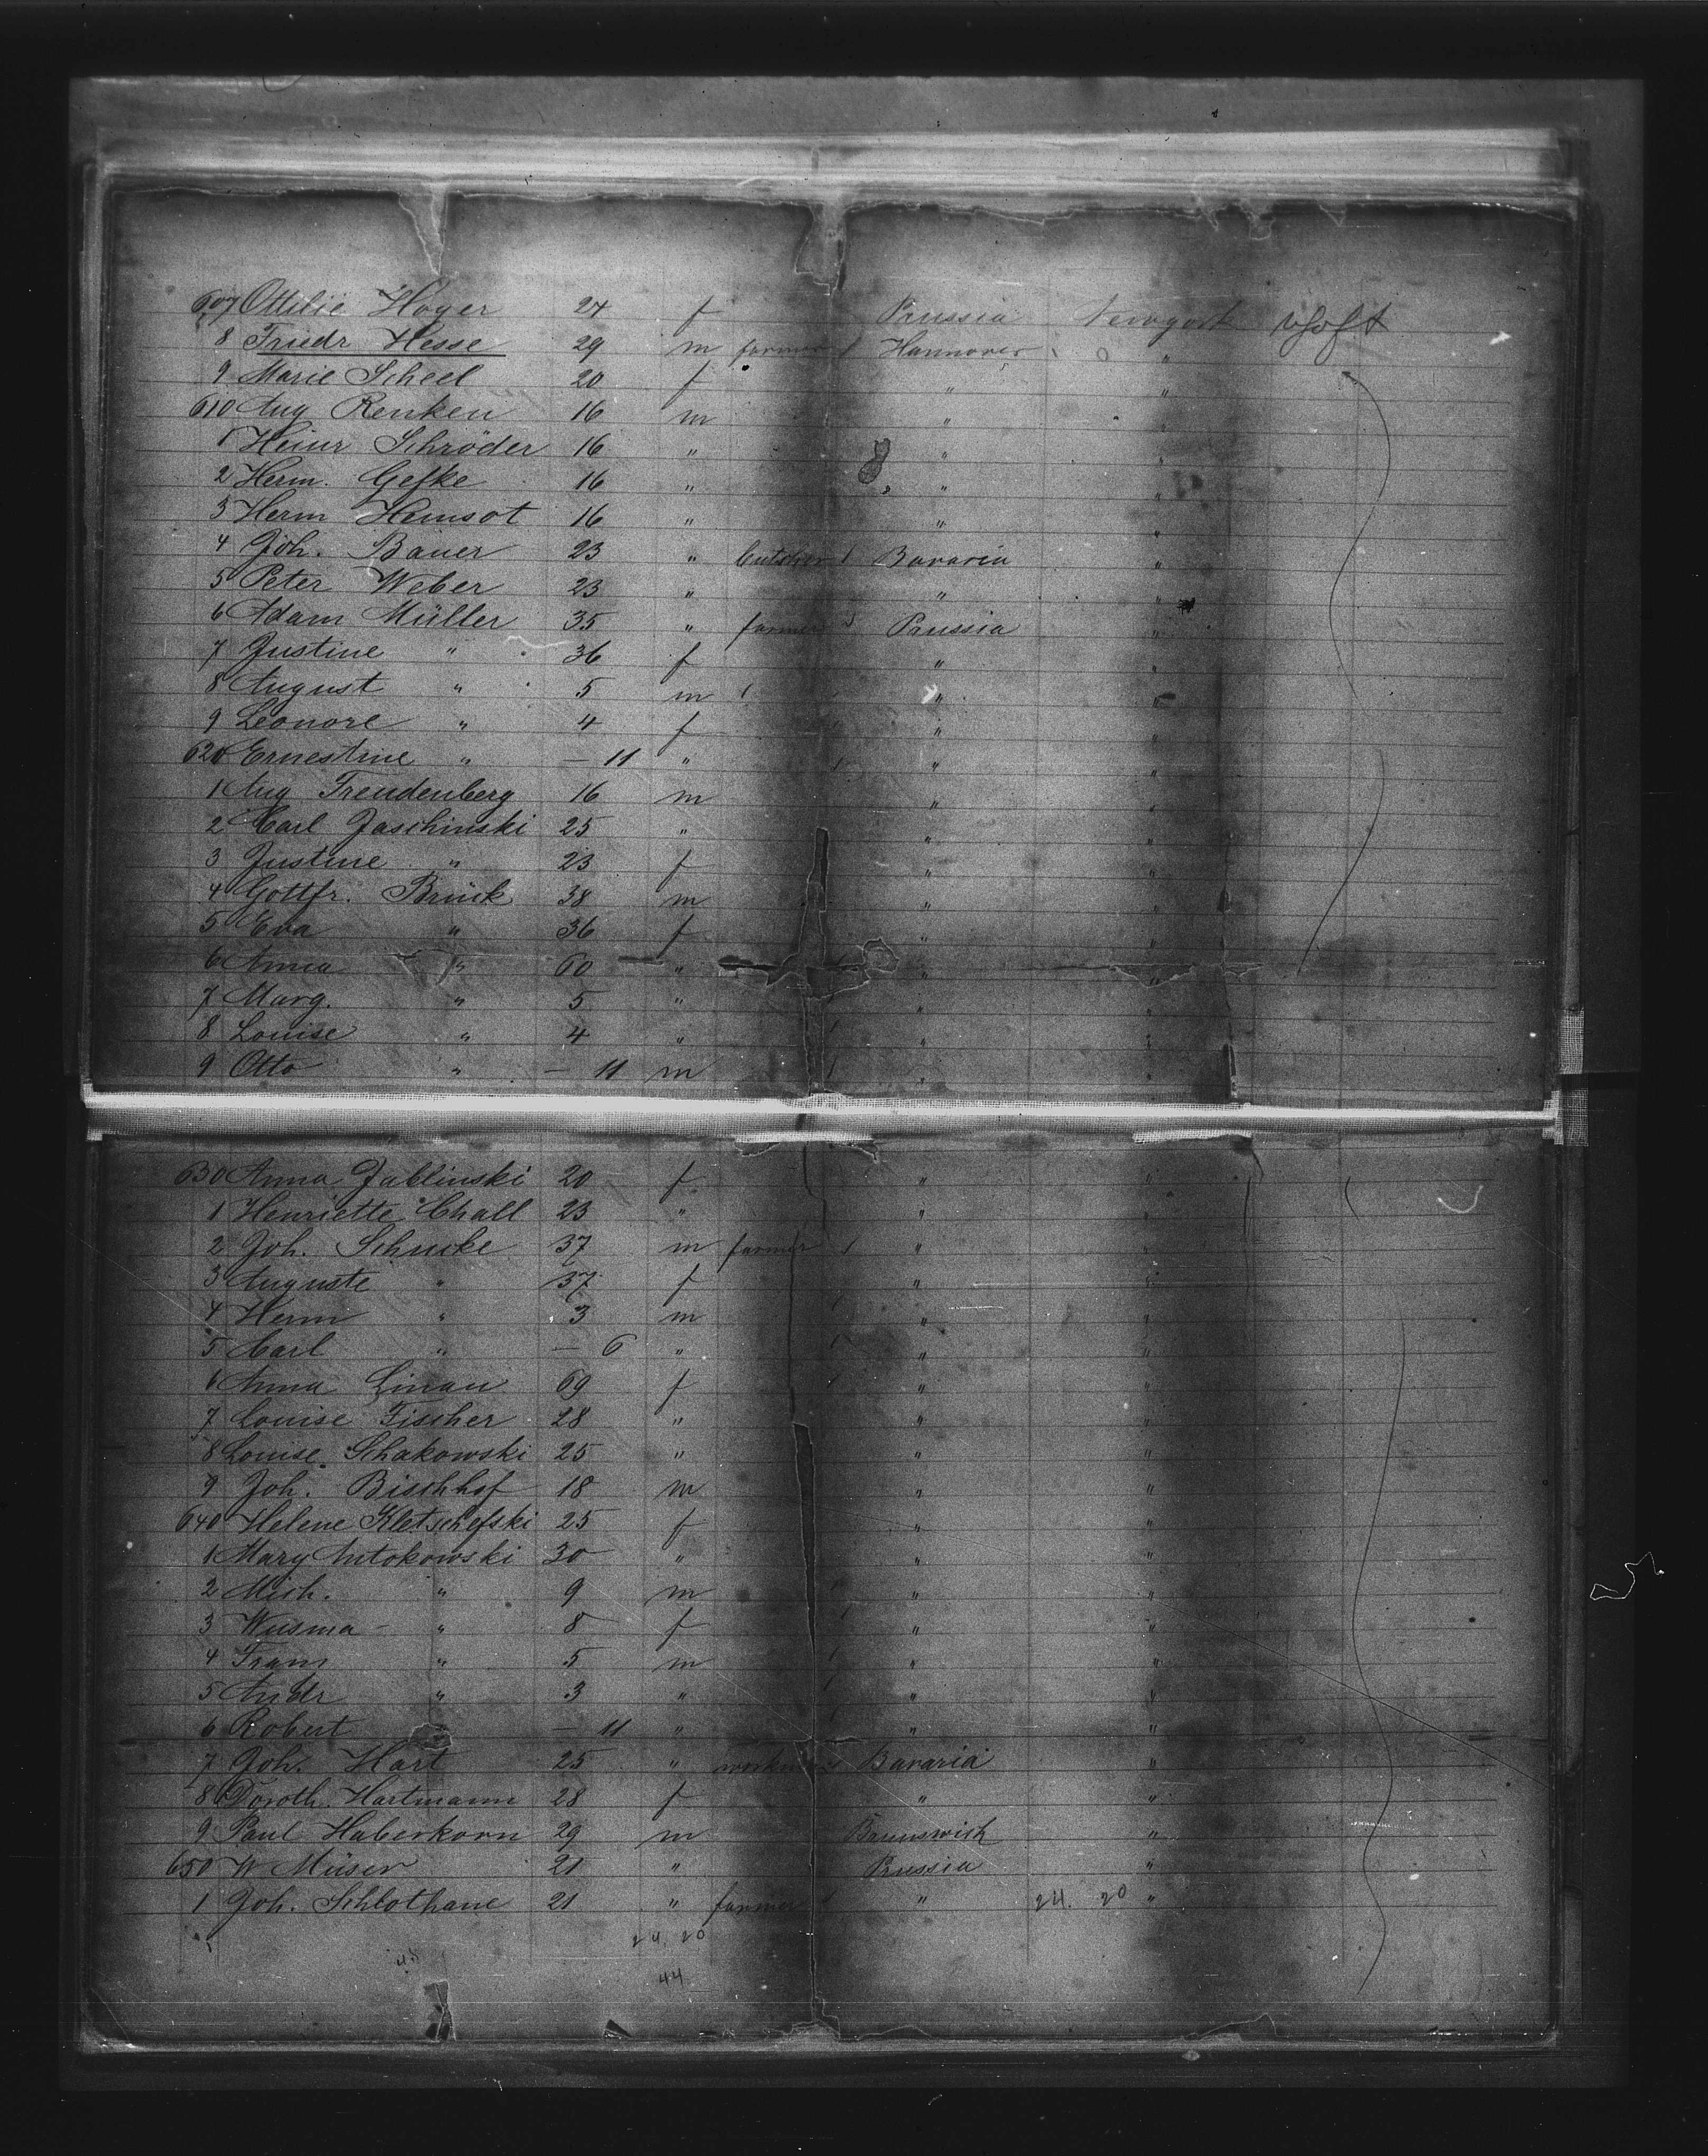 607 Ottilie Hoyer 24 f Prussia Newyork
8 Friedr Hesse 29 m farmer 1 Hannover "
9 Marie Scheel 20 f " "
610 Aug Renken 16 m " "
1 Heinr Schröder 16 " " "
2 Herm. Gefke 16 " " "
3 Herm Hemsot 16 " " "
4 Joh. Bauer 23 " butcher 1 Bavaria "
5 Peter Weber 23 " " "
6 Adam Müller 35 " farmer Prussia "
7 Justine " 36 f " "
8 August " 5 m " "
9 Leonore " 4 f " "
620 Ernestine " — 11 " " "
1 Aug Freudenberg 16 m " "
2 Carl Jaschinski 25 " " "
3 Justine " 23 f " "
4 Gottfr. Brück 38 m " "
5 Eva " 36 f " "
6 Anna " 60 " " "
7 Marg. " 5 " " "
8 Louise " 4 " " "
9 Otto " — 11 m " "
630 Anna Jablinski 20 f " "
1 Henriette Chall 23 " " "
2 Joh. Schucke 37 m farmer 1 " "
3 Auguste " 37 f " "
4 Herm " 3 m " "
5 Carl " — 6 " " "
6 Anna Linau 69 f " "
7 Louise Fischer 28 " " "
8 Louise Schakowski 25 " " "
9 Joh. Bischhof 18 m " "
640 Helene Kletschefski 25 f " "
1 Mary Antokowski 30 " " "
2 Mich. " 9 m " "
3 " 8 f " "
4 Franz " 5 m " "
5 Andr " 3 " " "
6 Robert — 11 " " "
7 Joh. Hart 25 " workman Bavaria "
8 Doroth. Hartmann 28 f " "
9 Paul Haberkorn 29 m Braunswich "
650 W Müser 21 " Prussia "
1 Joh. Schlothane 21 " farmer " 24. 20 "
24. 20
44